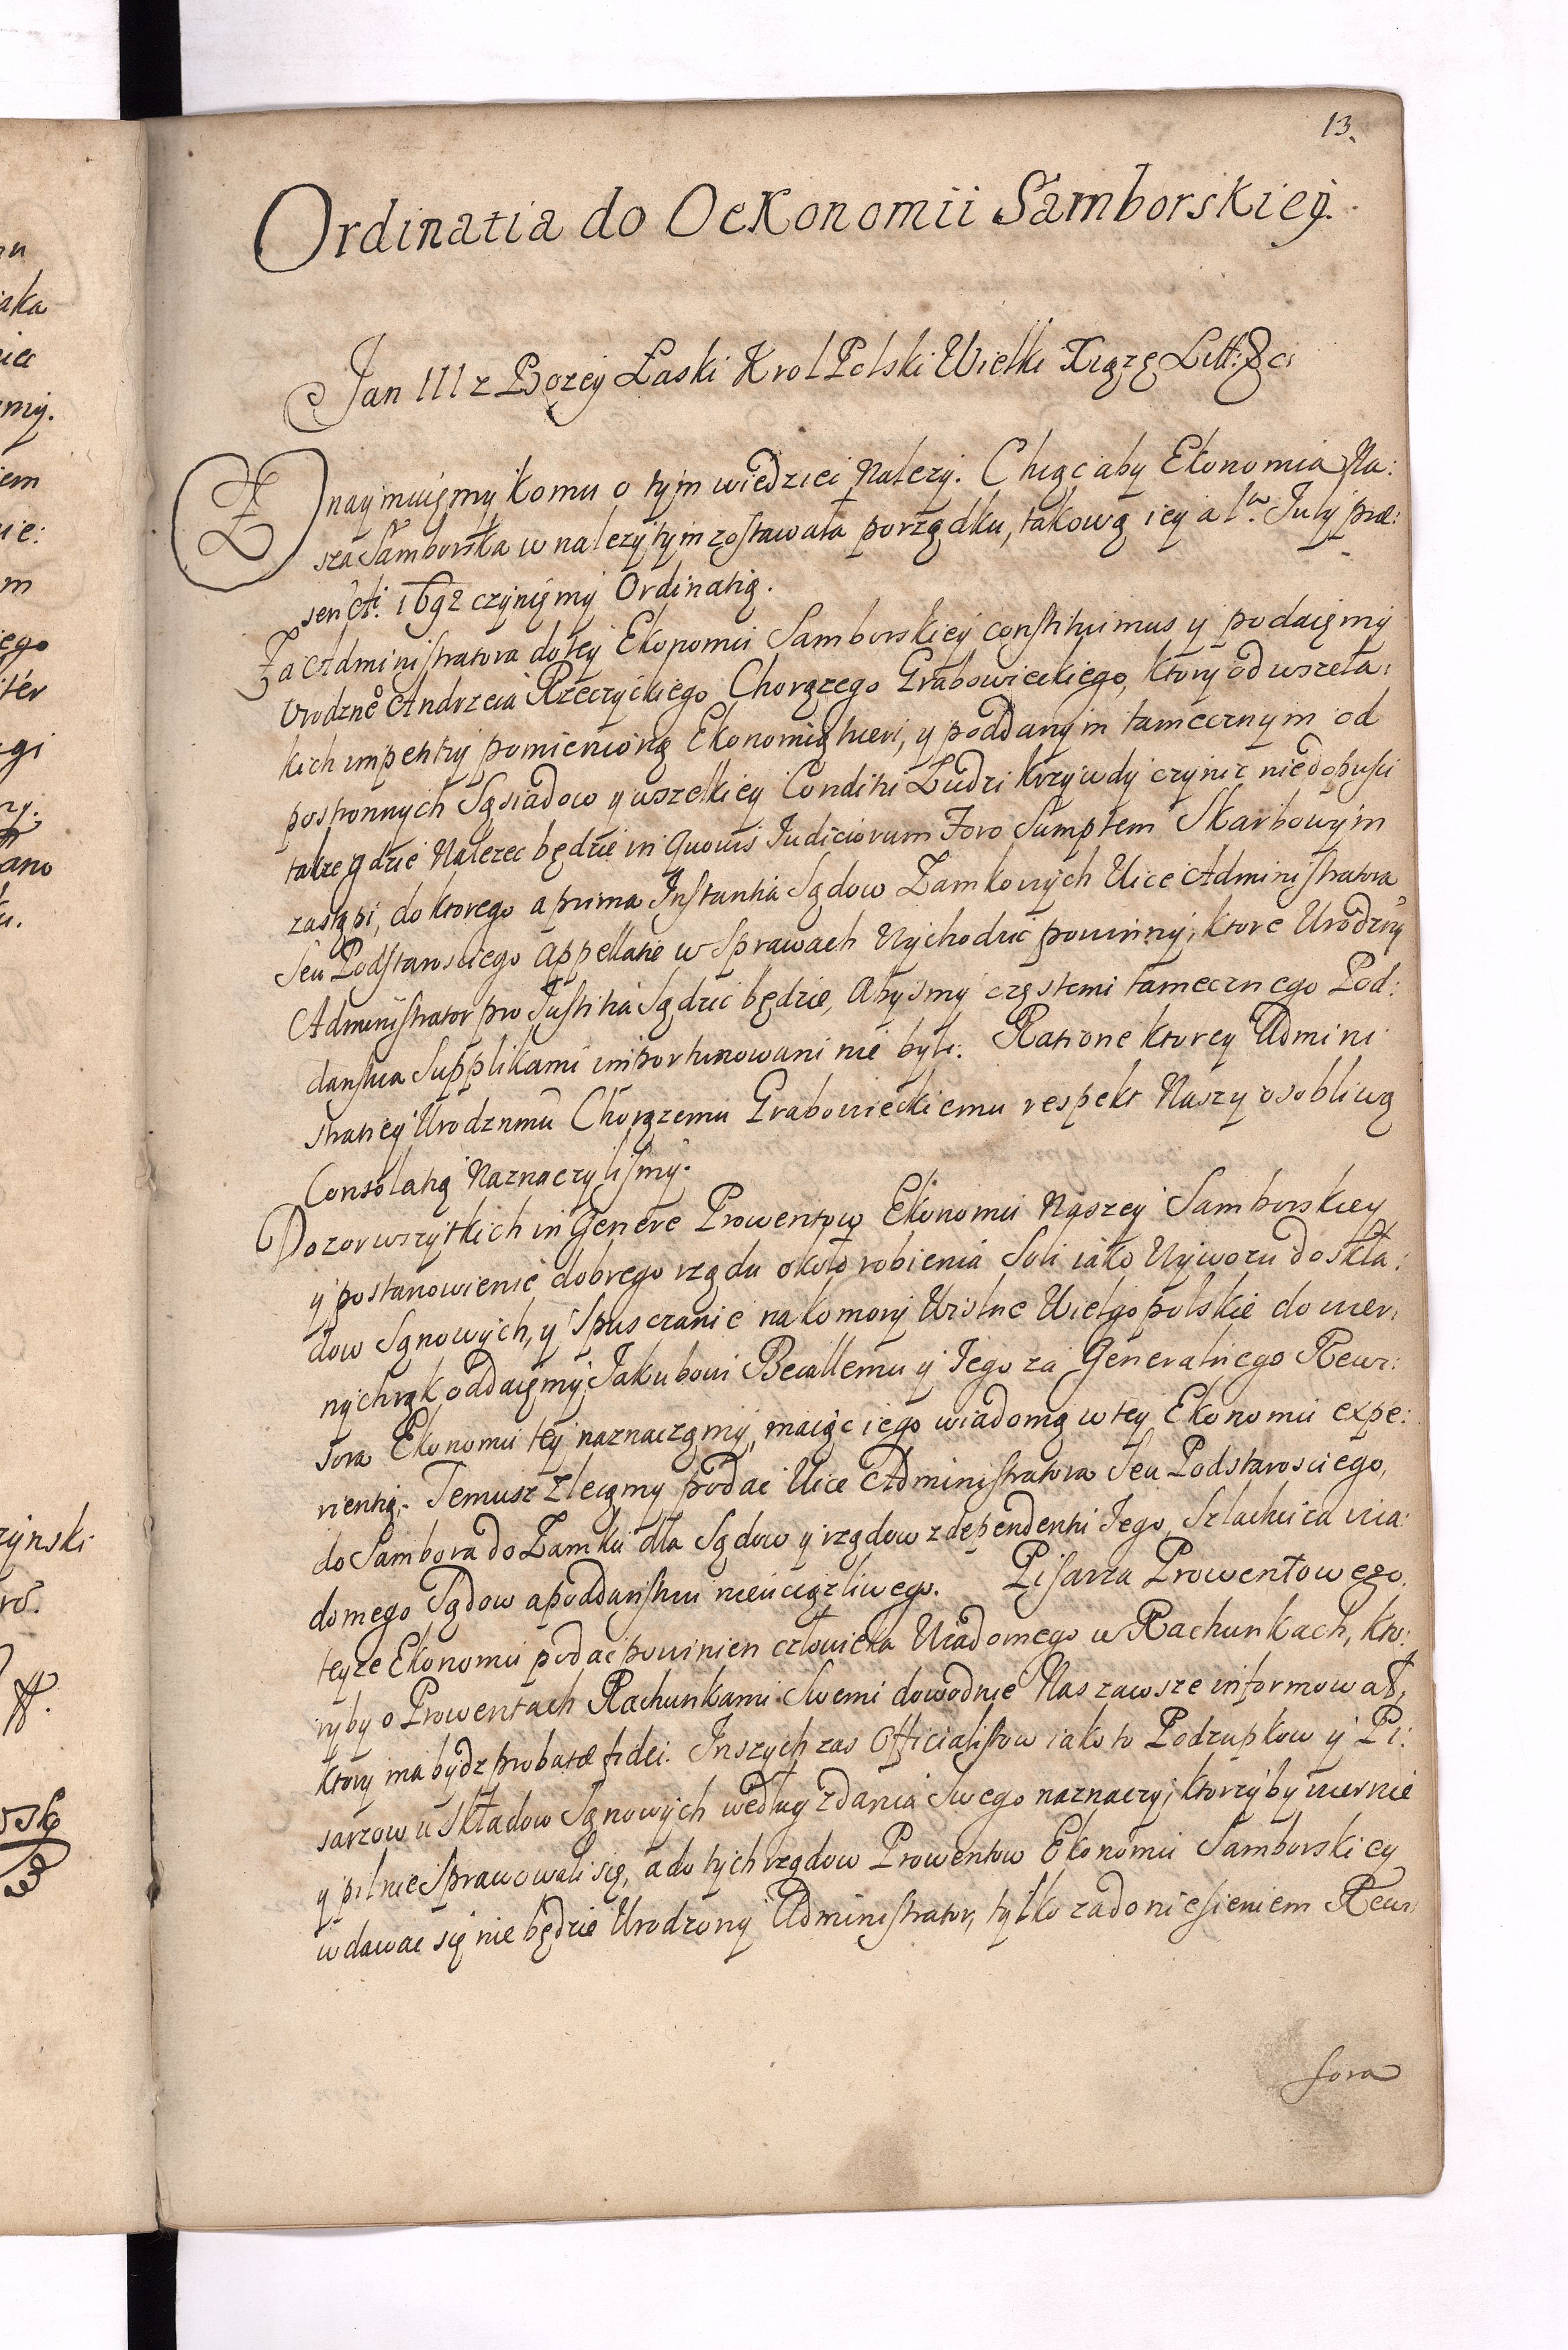 13.
Ordinatia do Oekonomii Samborskiey.
Jan III z Bozey Łaski Krol Polski Wielki Xiąze Litt: &c:
Znaymuięmy komu o tym wiedziec Nalezy. Chcąc aby Ekonomia Na:
sza Samborska w nalezytym zostawała porządku, takową iey a 1ma July præ:
sentis: 1692 czynięmy Ordinatią.
Za Administratora do tey Ekonomii Samborskiey constituimus y podaięmy
Urodzno Andrzeia Rzeczyckiego Chorązego Grabowieckiego, ktory od wszela:
kich impetity pomienioną Ekonomią tueri, y poddanym tamecznym od
postronnych Sąsiadow y wszelkiey Conditii Ludzi krzywdy czynic niedopusci
takze gdzie Nalezec będzie in Quovis Judiciorum Foro Sumptem Skarbowym
zastąpi, do ktorego a prima Instantia Sądow Zamkowych Vice Administratora
Seu Podstarosciego Appellatie w Sprawach Wychodzic powinny, ktore Urodzny
Administrator pro Justitia Sądzic będzie, Abysmy częstemi tamecznego Pod:
danstwa Supplikami importunowani nie byli. Ratione ktorey Admini:
stratiey Urodznmu Chorązemu Grabowieckiemu respekt Naszy osobliwą
Consolatią Naznaczylismy.
Dozor wszytkich in Genere Prowentow Ekonomii Naszey Samborskiey
y postanowienie dobrego rządu około robienia Soli iako Wywozu do skła:
dow Sąnowych, y Spusczanie na komory Wislne Wielgopolskie do wier:
nych rąk oddaięmy Jakubowi Becallemu y Jego za Generalnego Rewi:
sora Ekonomii tey naznaczamy, maiąc iego wiadomą w tey Ekonomii expe:
rientią. Temusz Zlecamy podac Vice Administratora Seu Podstarosciego,
do Sambora do Zamku dla Sądow y rządow z dependentii Jego, Szlachcica wia:
domego Sądow a poddanstwu nieuciązliwego. Pisarza Prowentowego
teyze Ekonomii podac powinien człowieka Wiadomego w Rachunkach, kto:
ryby o Prowentach Rachunkami Swemi dowodnie Nas zawsze informował,
ktory ma bydz probatæ fidei. Inszych zas Officialistow iako to Podzupkow y Pi:
sarzow u Składow Sąnowych według zdania Swego naznaczy, ktorzyby wiernie
y pilnie Sprawowali się, a do tych rządow Prowentow Ekonomii Samborskiey
wdawac się nie będzie Urodzony Administrator, tylko za doniesieniem Rewi:
sora